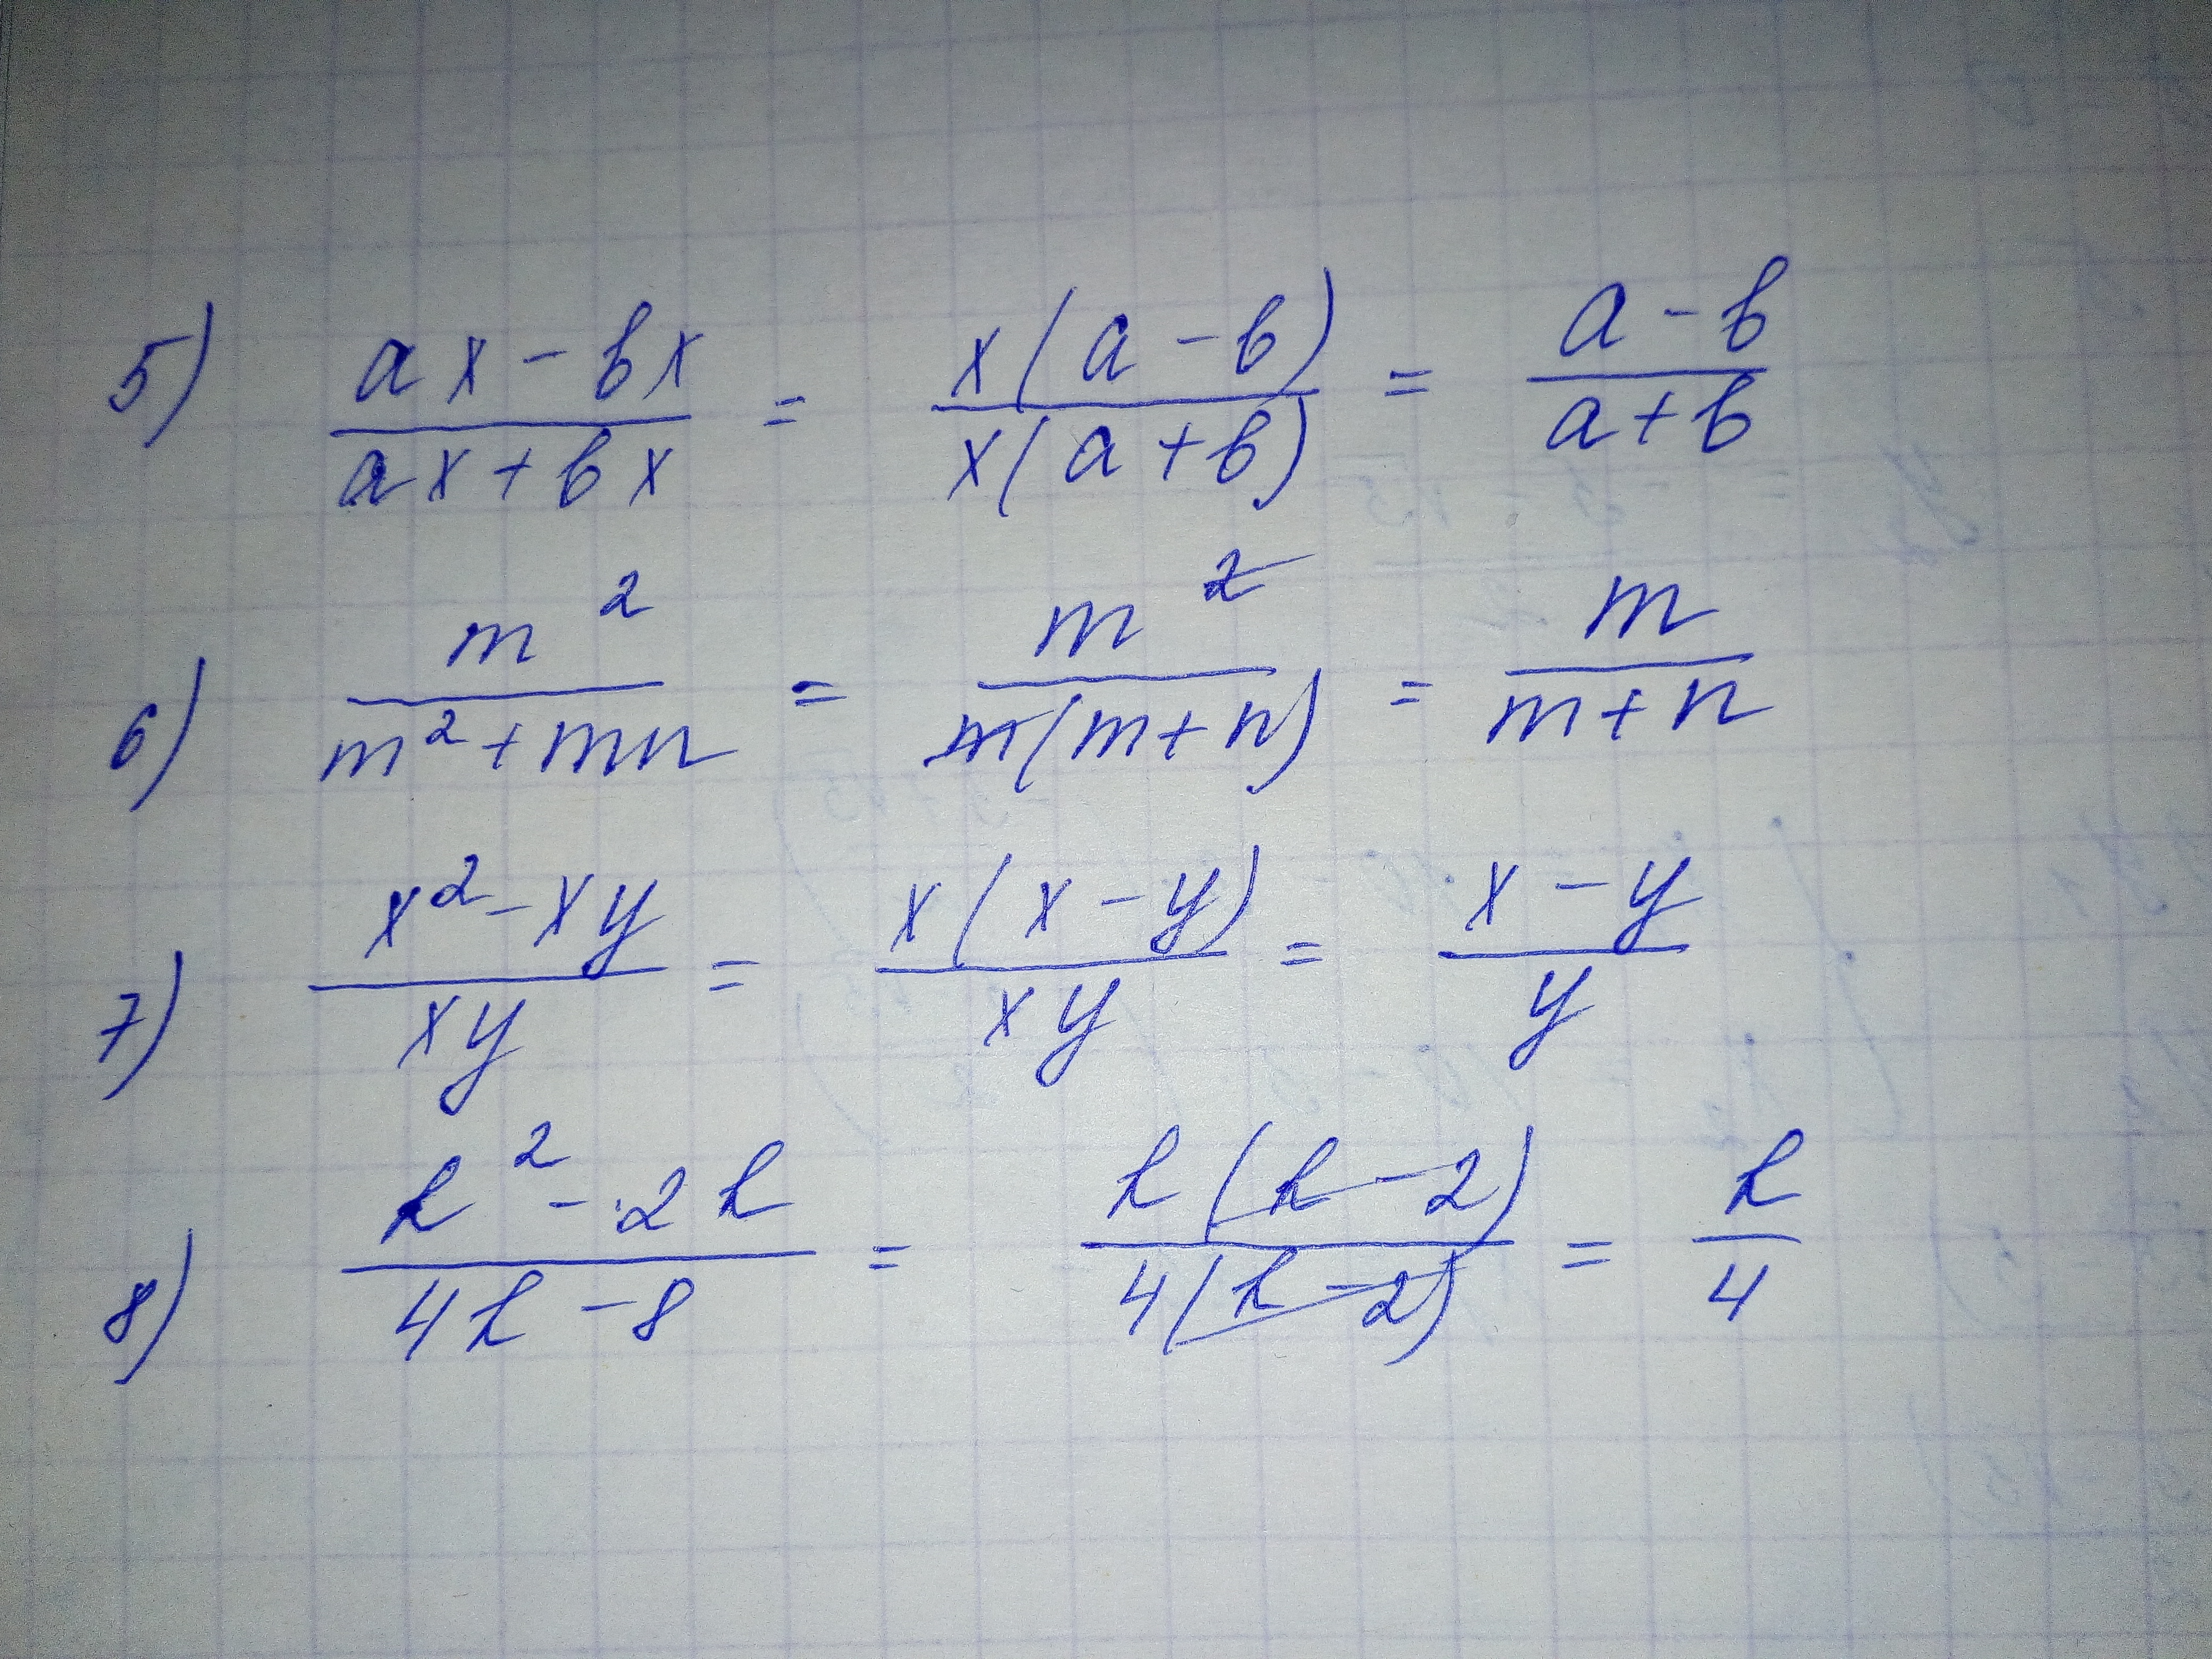 5) (ax - bx)/(ax + bx) = x(a - b)/x(a + b) = (a - b)/(a + b)
6) m²/(m² + mn) = m²/m(m + n) = m/(m + n)
7) (x² - xy)/xy = x(x - y)/xy = (x - y)/y
8) (k² - 2k)/(4k - 8) = k(k - 2)/4(k - 2) = k/4